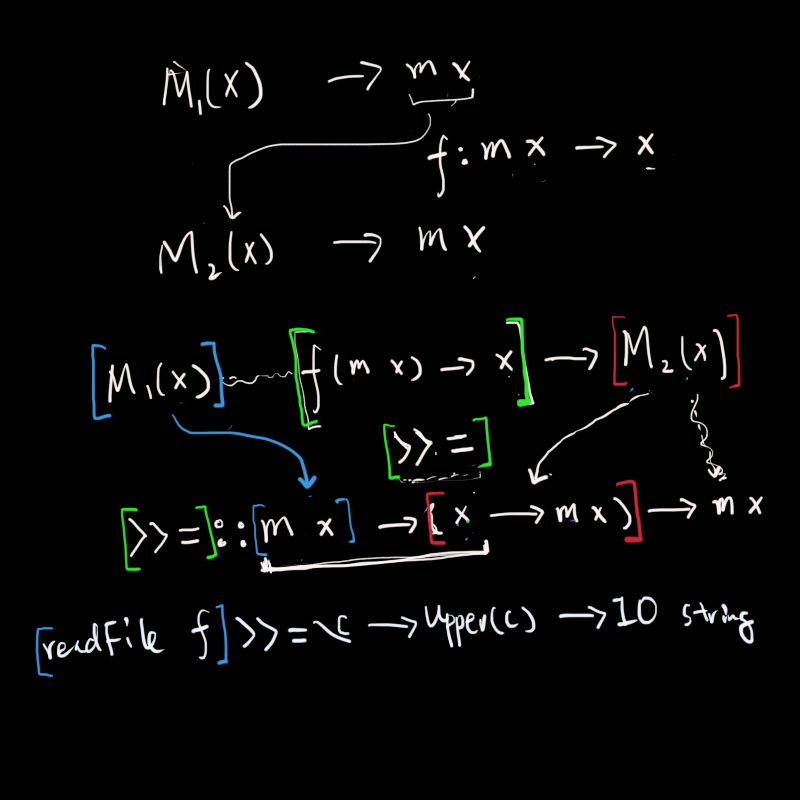 M₁(x) → m x
f : m x → x
M₂(x) → m x
[M₁(x)] [f(m x) → x] → [M₂(x)]
[>>=]
[>>=] :: [m x] → [(x → m x)] → m x
[readFile f] >>= \c → Upper(c) → IO string